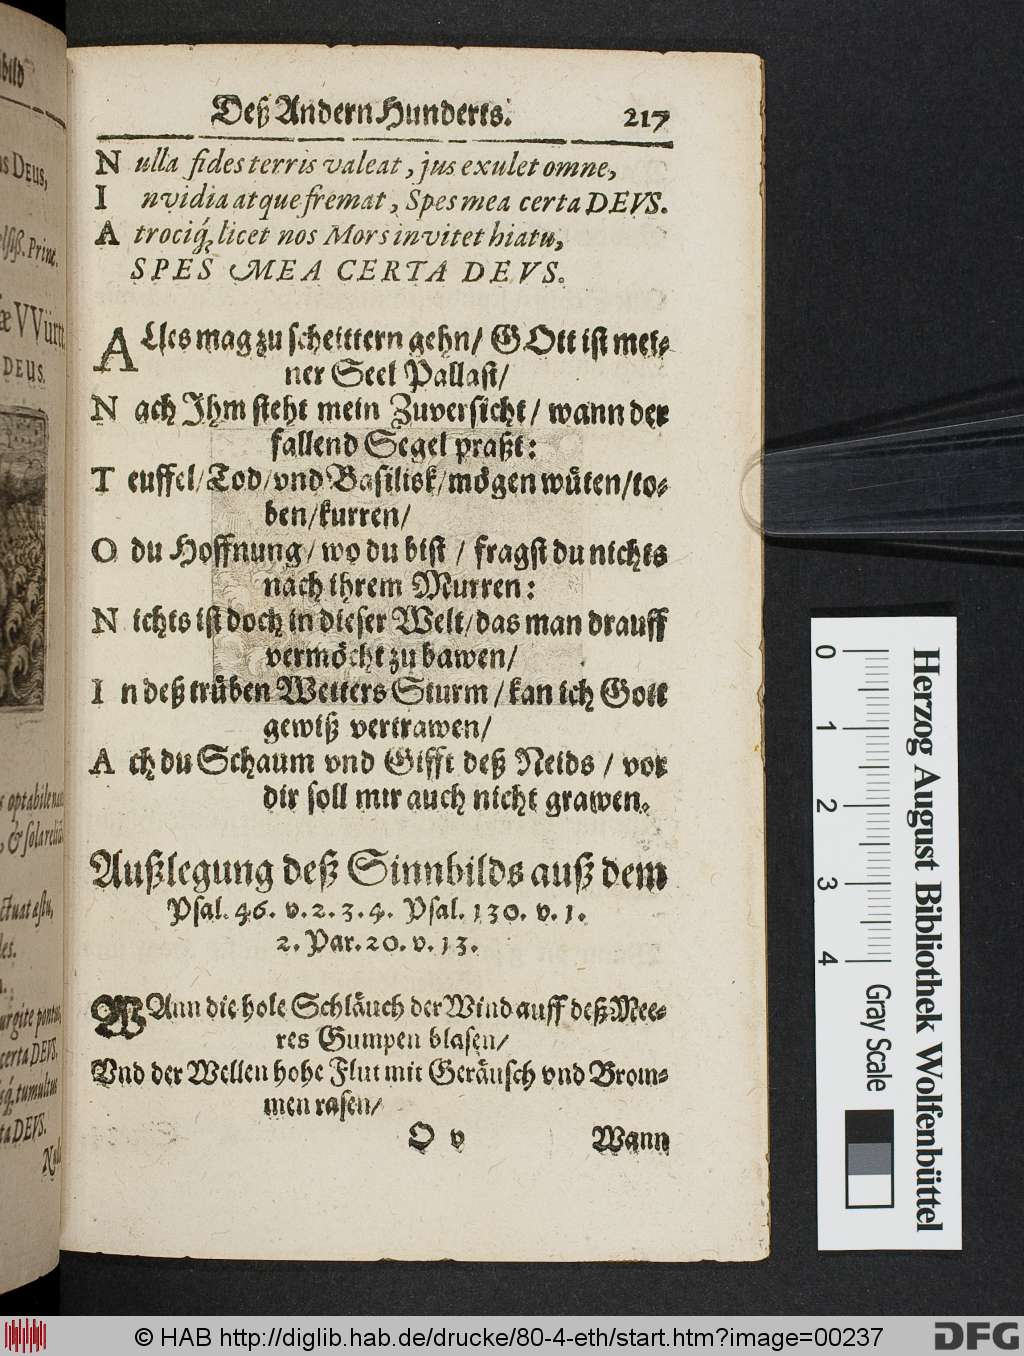 Deß Andern Hunderts. 217
N ulla fides terris valeat, jus exulet omne,
I nvidia atque fremat, Spes mea certa DEVS.
A trociq́; licet nos Mors invitet hiatu,
SPES MEA CERTA DEVS.
ALles mag zu scheittern gehn/ GOtt ist mei-
ner Seel Pallast/
N ach Ihm steht mein Zuversicht/ wann der
fallend Segel praßt:
T euffel/Tod/vnd Basilisk/mögen wüten/to-
ben/kurren/
O du Hoffnung/ wo du bist / fragst du nichts
nach ihrem Murren:
N ichts ist doch in dieser Welt/das man drauff
vermöcht zu bawen/
I n deß trüben Wetters Sturm / kan ich Gott
gewiß vertrawen/
A ch du Schaum vnd Gifft deß Neids / vor
dir soll mir auch nicht grawen.
Außlegung deß Sinnbilds auß dem
Psal. 46. v. 2. 3. 4. Psal. 130. v. 1.
2. Par. 20. v. 13.
WAnn die hole Schläuch der Wind auff deß Mee-
res Gumpen blasen/
Vnd der Wellen hohe Flut mit Geräusch vnd Brom-
men rasen/
O v Wann
bild
DEUS,
Princ.
VVürtt
DEUS.
optabile
& sola
ctuat æstu,
urgite pontus,
certa DEVS.
tumultus
ta DEVS.
0 1 2 3 4
Herzog August Bibliothek Wolfenbüttel
Gray Scale
© HAB http://diglib.hab.de/drucke/80-4-eth/start.htm?image=00237
DFG